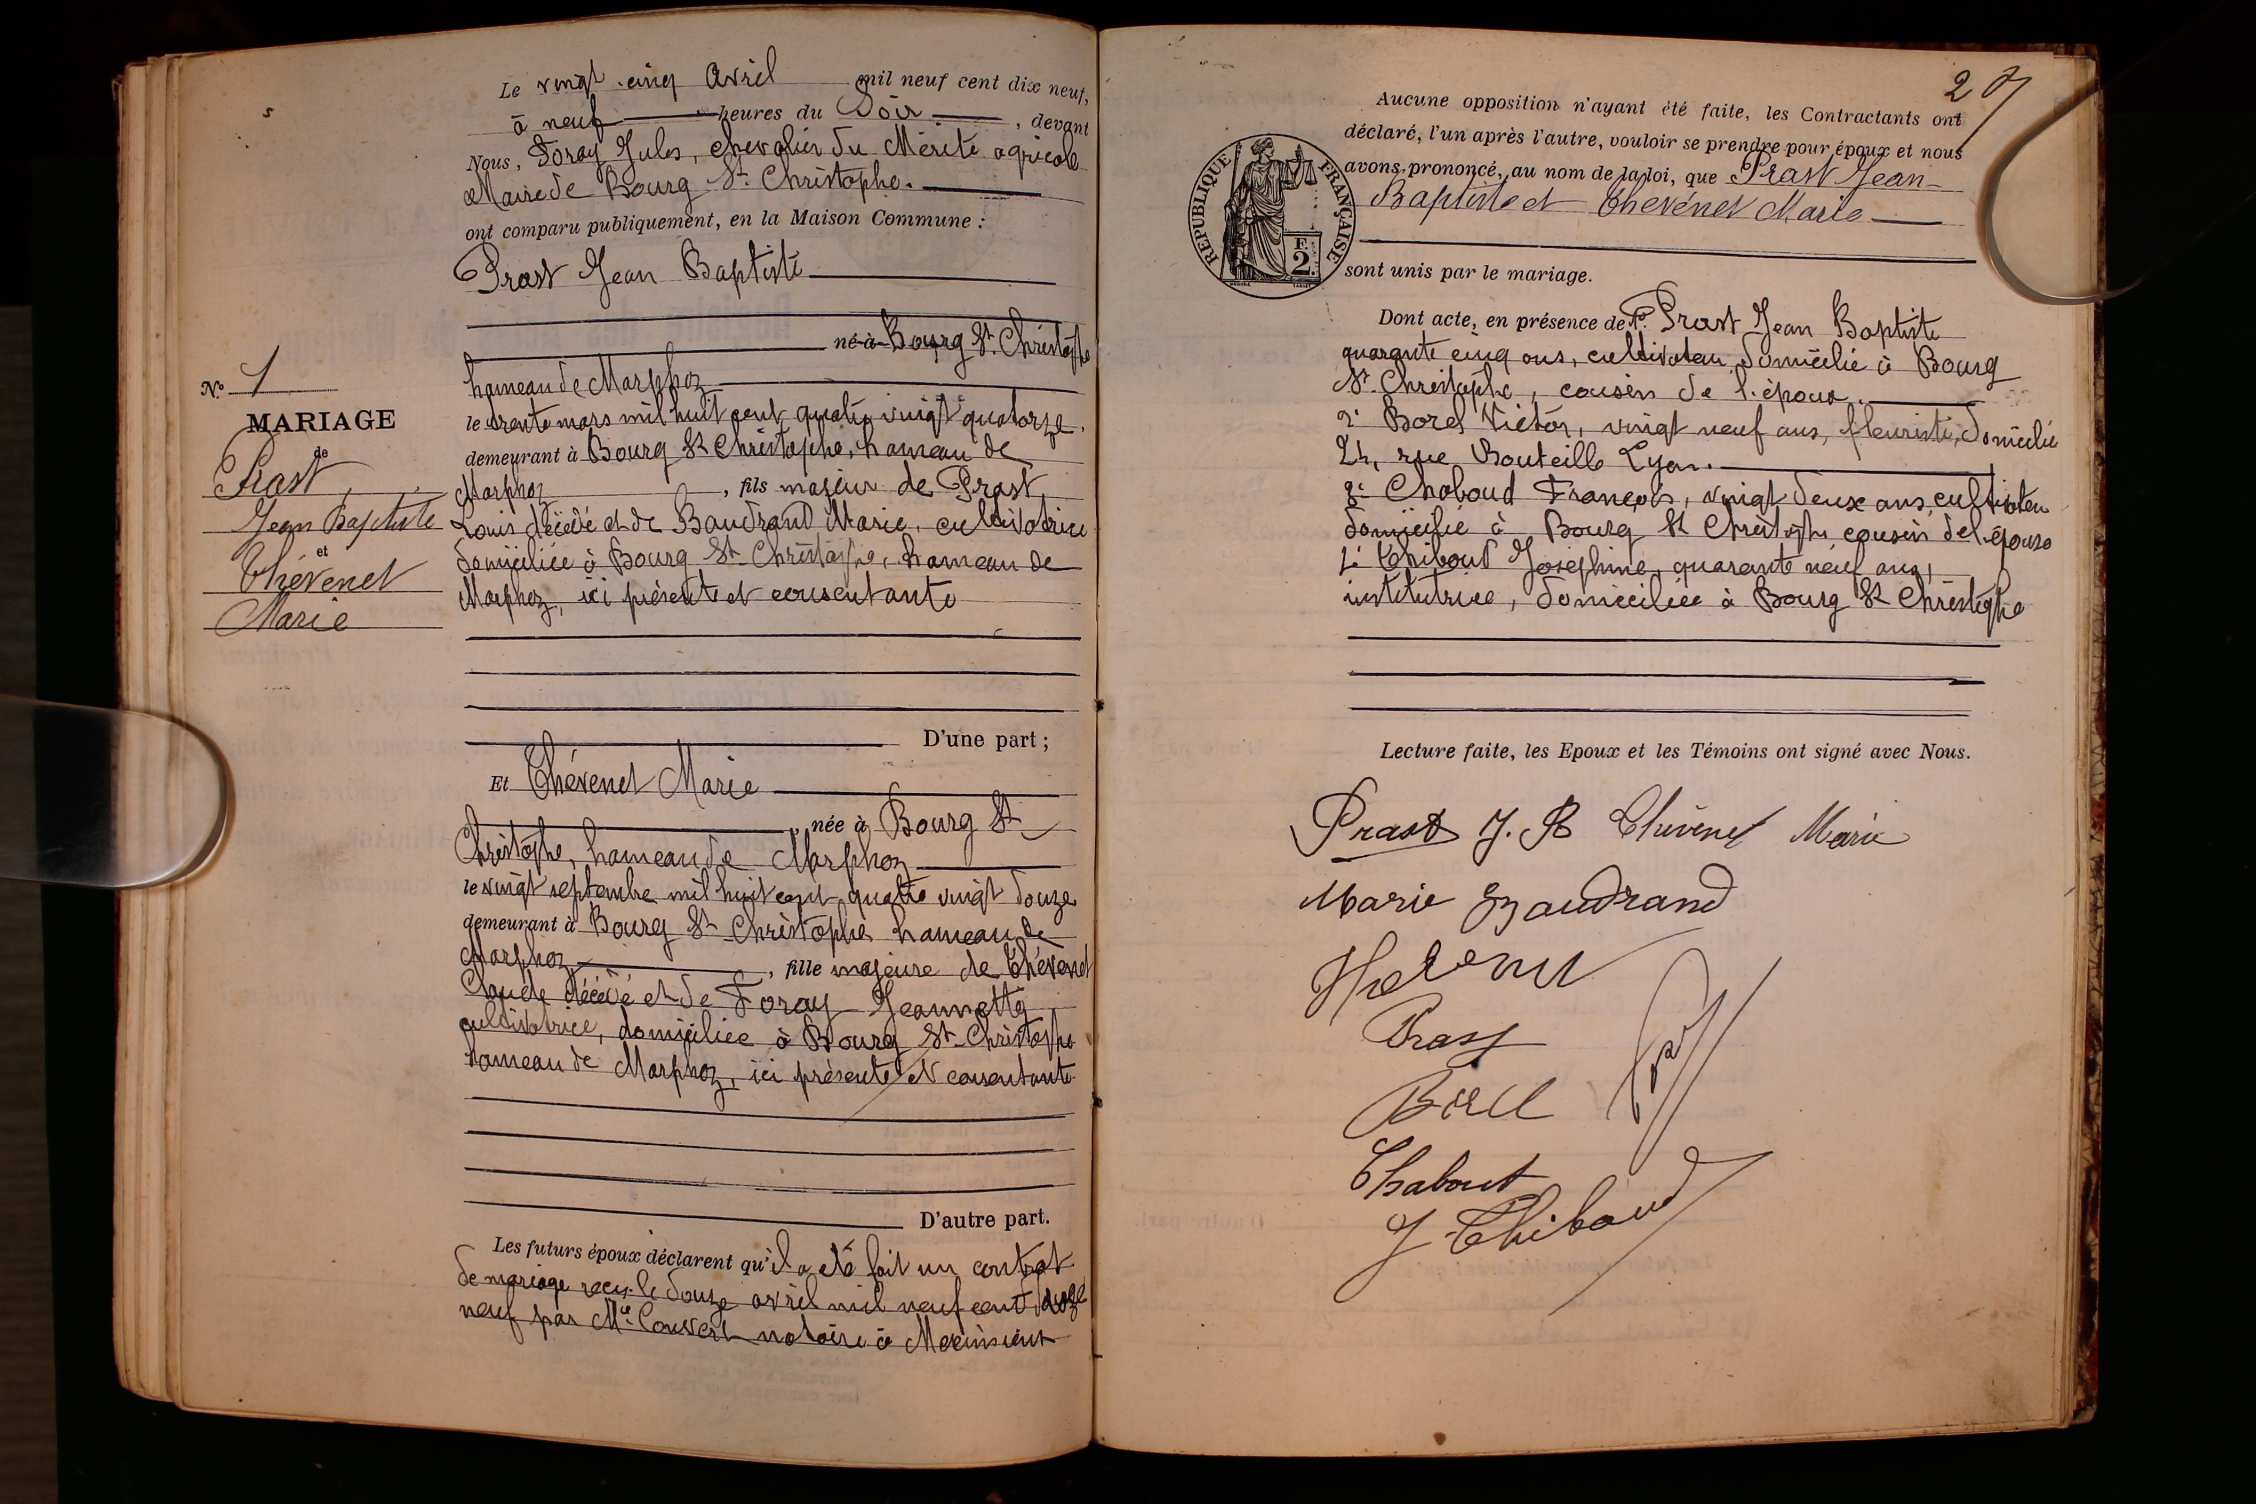 Le vingt cinq Avril mil neuf cent dix neuf,
à neuf heures du Soir, devant
Nous, Foray Jules, chevalier du Mérite agricole
Maire de Bourg St Christophe.
ont comparu publiquement, en la Maison Commune :
Prast Jean Baptiste
né à Bourg St Christophe
hameau de Marphoz
le trente mars mil huit cent quatre vingt quatorze.
demeurant à Bourg St Christophe, hameau de
Marphoz, fils majeur de Prast
Louis décédé et de Baudrand Marie, cultivatrice
domiciliée à Bourg St Christophe, hameau de
Marphoz, ici présente et consentante
D'une part ;
Et Thévenet Marie
, née à Bourg St
Christophe, hameau de Marphoz
le vingt septembre mil huit cent quatre vingt douze
demeurant à Bourg St Christophe hameau de
Marphoz, fille majeure de Thévenet
Claude décédé et de Foray Jeannette
cultivatrice, domiciliée à Bourg St Christophe
hameau de Marphoz, ici présente et consentante
D'autre part.
Les futurs époux déclarent qu'il a été fait un contrat
de mariage reçu le douze avril mil neuf cent
neuf par Me Convert notaire à Meximieux
No 1
MARIAGE
de
Prast
Jean Baptiste
et
Thévenet
Marie
2
Aucune opposition n'ayant été faite, les Contractants ont
déclaré, l'un après l'autre, vouloir se prendre pour époux et nous
avons prononcé, au nom de la loi, que Prast Jean-
Baptiste et Thévenet Marie
sont unis par le mariage.
RÉPUBLIQUE FRANÇAISE
F.
2.
Dont acte, en présence de 1° Prast Jean Baptiste
quarante cinq ans, cultivateur, domicilié à Bourg
St Christophe, cousin de l'époux.
2° Borel Victor, vingt neuf ans, fleuriste, domicilié
24, rue Bouteille Lyon.
3° Chaboud François, vingt deux ans, cultivateur
domicilié à Bourg St Christophe cousin de l'épouse
4° Thiboud Joséphine, quarante neuf ans,
institutrice, domiciliée à Bourg St Christophe
Lecture faite, les Epoux et les Témoins ont signé avec Nous.
Prast J. B Thévenet Marie
Marie Baudrand
Prast
Borel
Chabout
J Thiboud